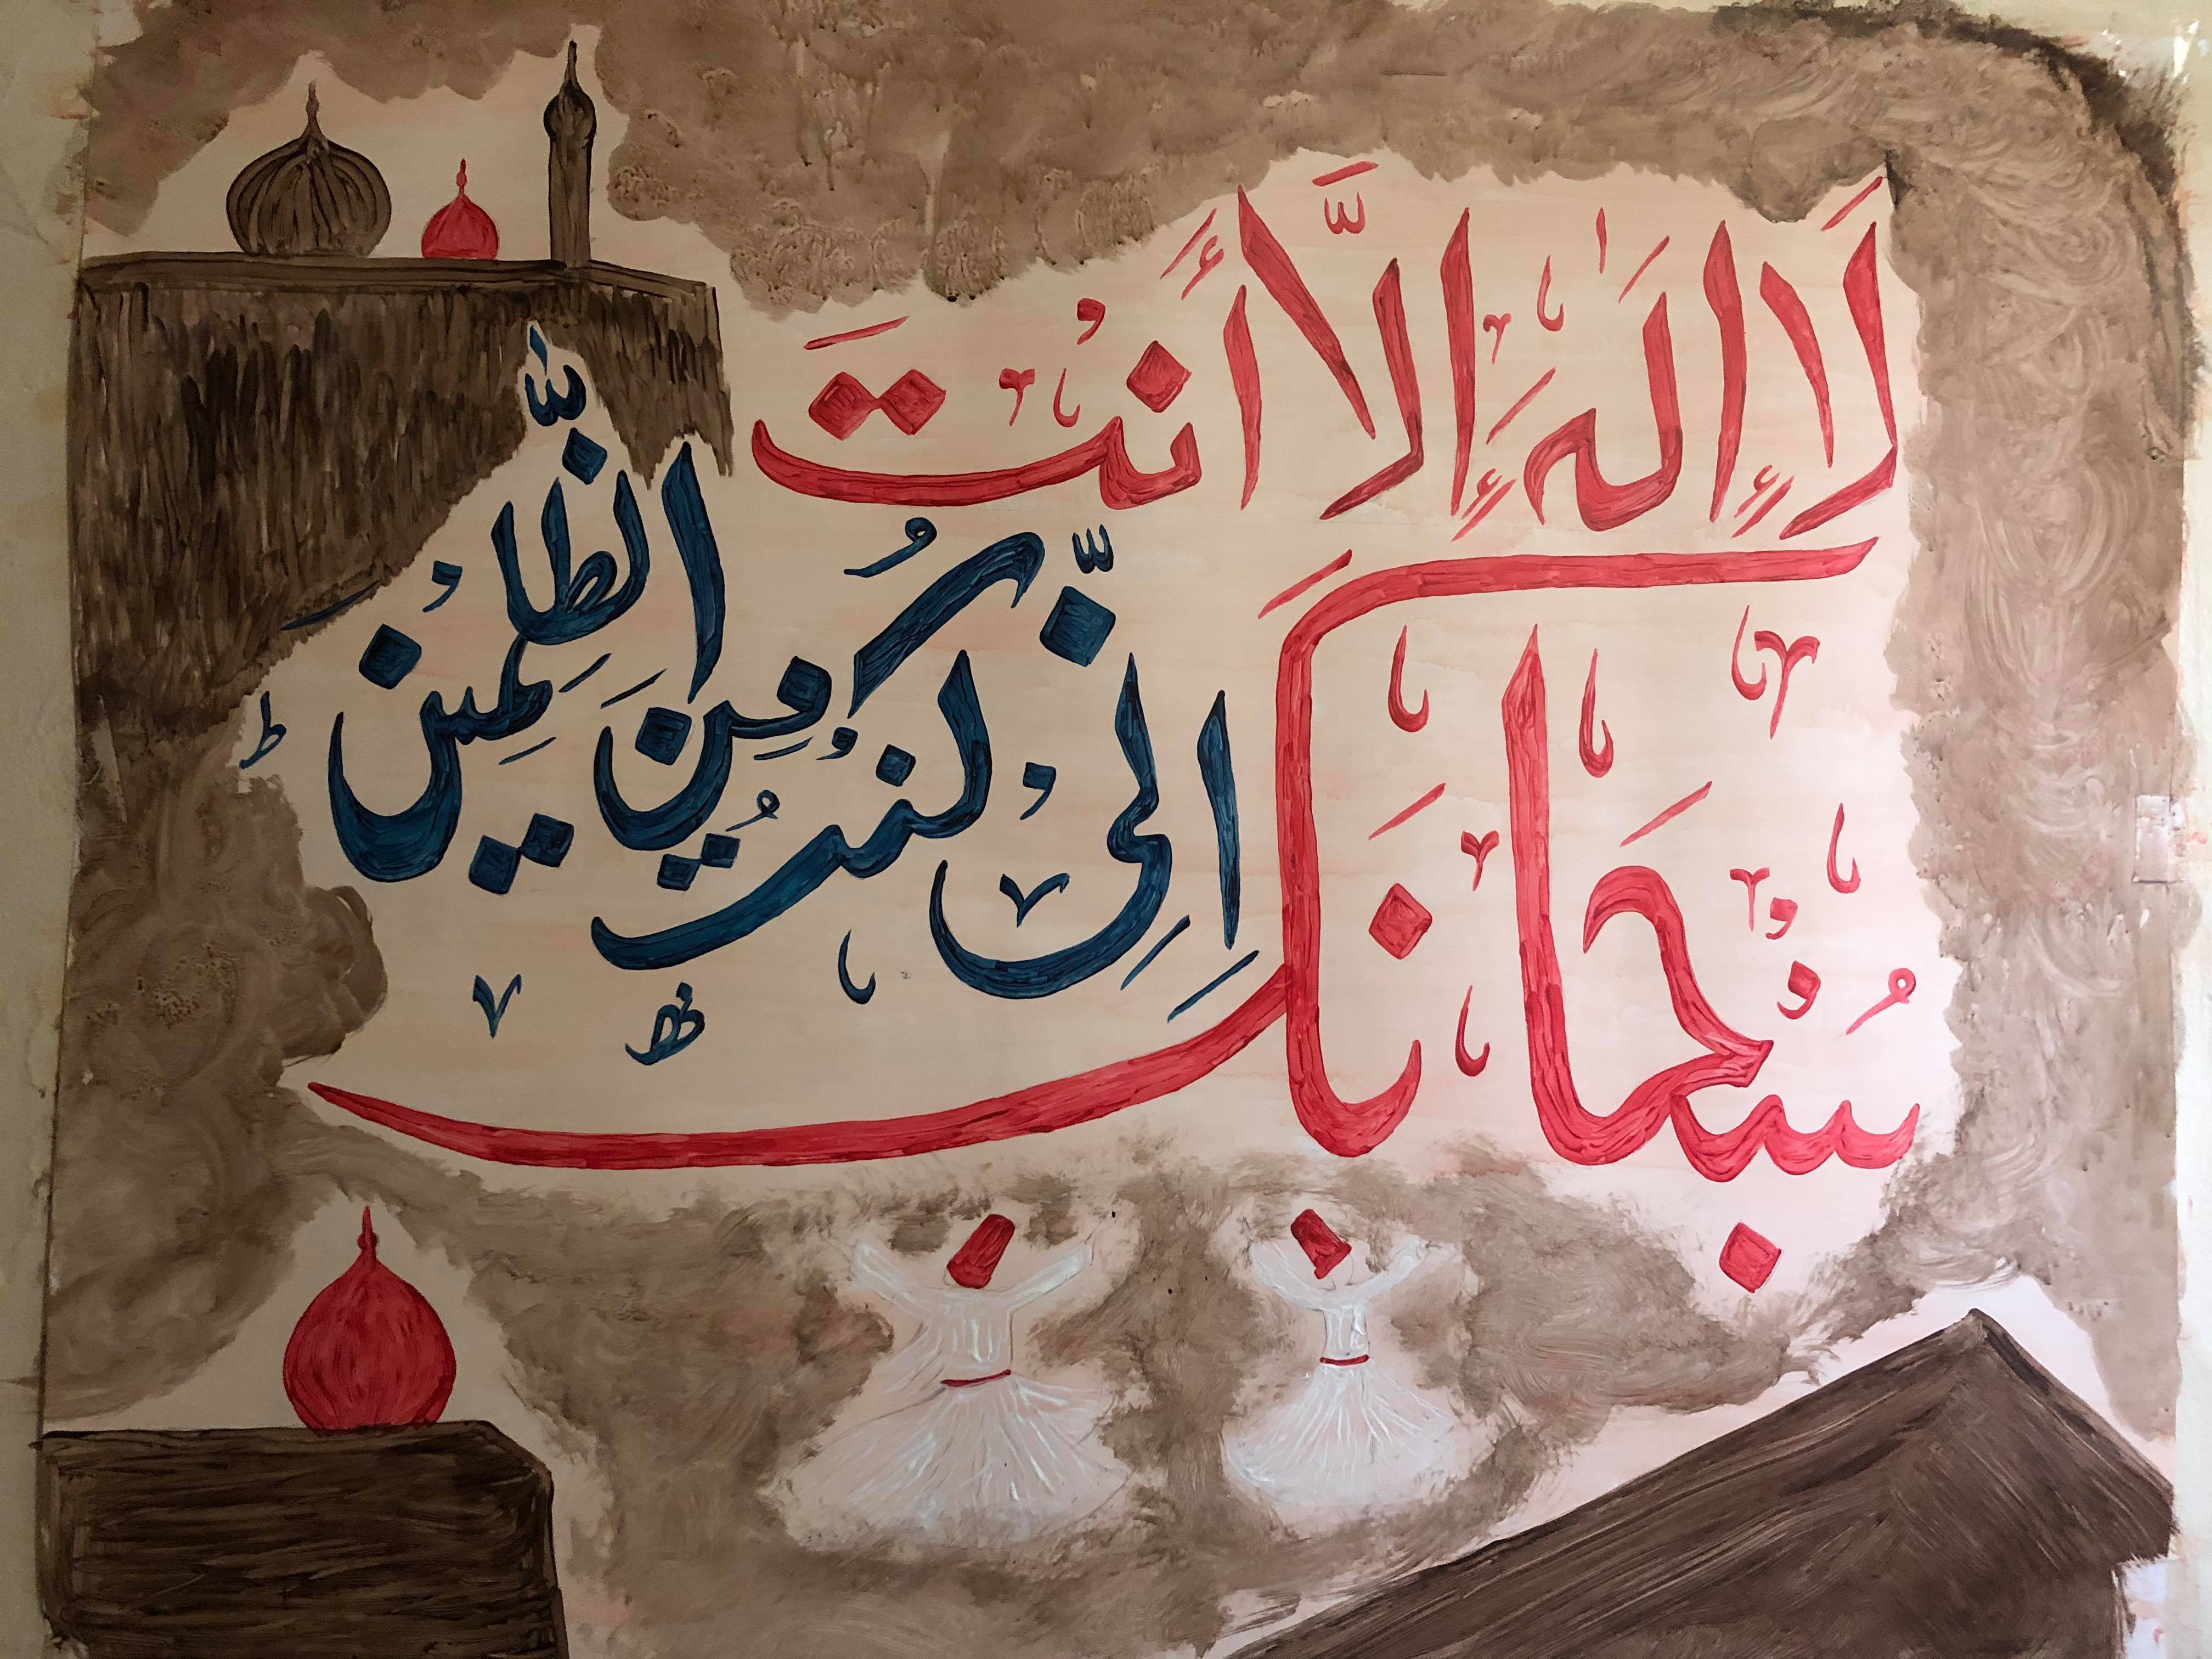 لَا إِلٰهَ إِلَّا أَنْتَ
سُبْحَانَكَ
اِنِّی کُنْتُ مِنَ الظّٰلِمِیْنَ